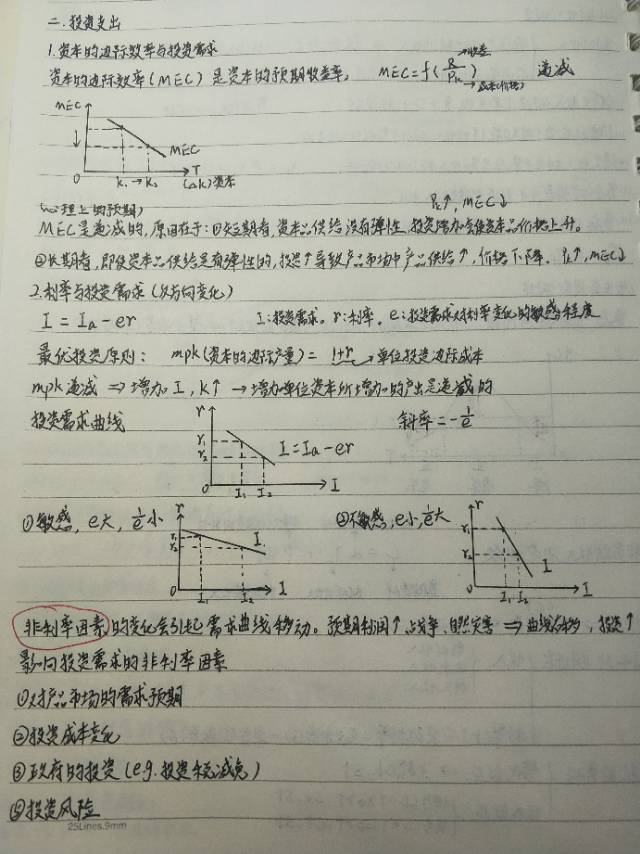 二.投资支出
1.资本的边际效率与投资需求
资本的边际效率(MEC)是资本的预期收益率, MEC=f(R/Pk) →收益 →成本(价格) 递减
MEC
MEC
O K₁→K₂ T
(△K)资本
(心理上的预期) Pk↑,MEC↓
MEC是递减的,原因在于:①短期看,资本品供给没有弹性,投资增加会使资本品价格上升。
②长期看,即使资本品供给是有弹性的,投资↑导致产品市场中产品供给↑,价格下降. Pk↑,MEC↓
2.利率与投资需求(反方向变化)
I=Ia-er I:投资需求. r:利率. e:投资需求对利率变化的敏感程度
最优投资原则: mpk(资本的边际产量)=1+r→单位投资边际成本
mpk递减 ⇒增加I,K↑→增加单位资本所增加的产出是递减的
投资需求曲线 斜率=-1/e
r
r₁
r₂
I=Ia-er
O I₁ I₂ I
①敏感,e大,1/e小 ②不敏感,e小,1/e大
r
r₁
r₂
I
O I₁ I₂ I
r
r₁
r₂
I
O I₁ I₂ I
非利率因素的变化会引起需求曲线移动。预期利润↑、战争、自然灾害⇒曲线右移,投资↑
影响投资需求的非利率因素
①对产品市场的需求预期
②投资成本变化
③政府的投资(e.g.投资税减免)
投资风险
25Lines.9mm